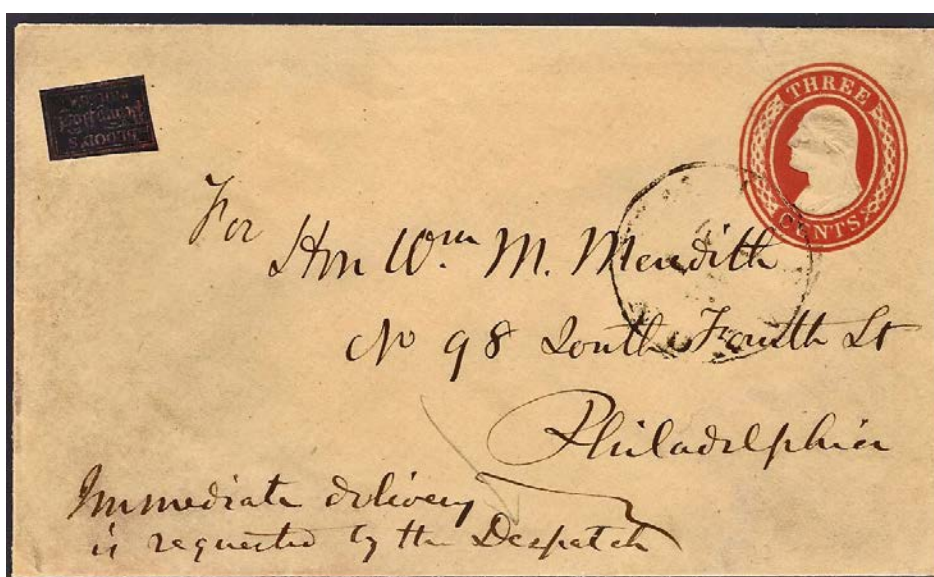 BLOOD'S
THREE
CENTS
For
Hon Wm M. Meredith
No 98 South Fourth St
Philadelphia
Immediate delivery
is requested by the Despatch